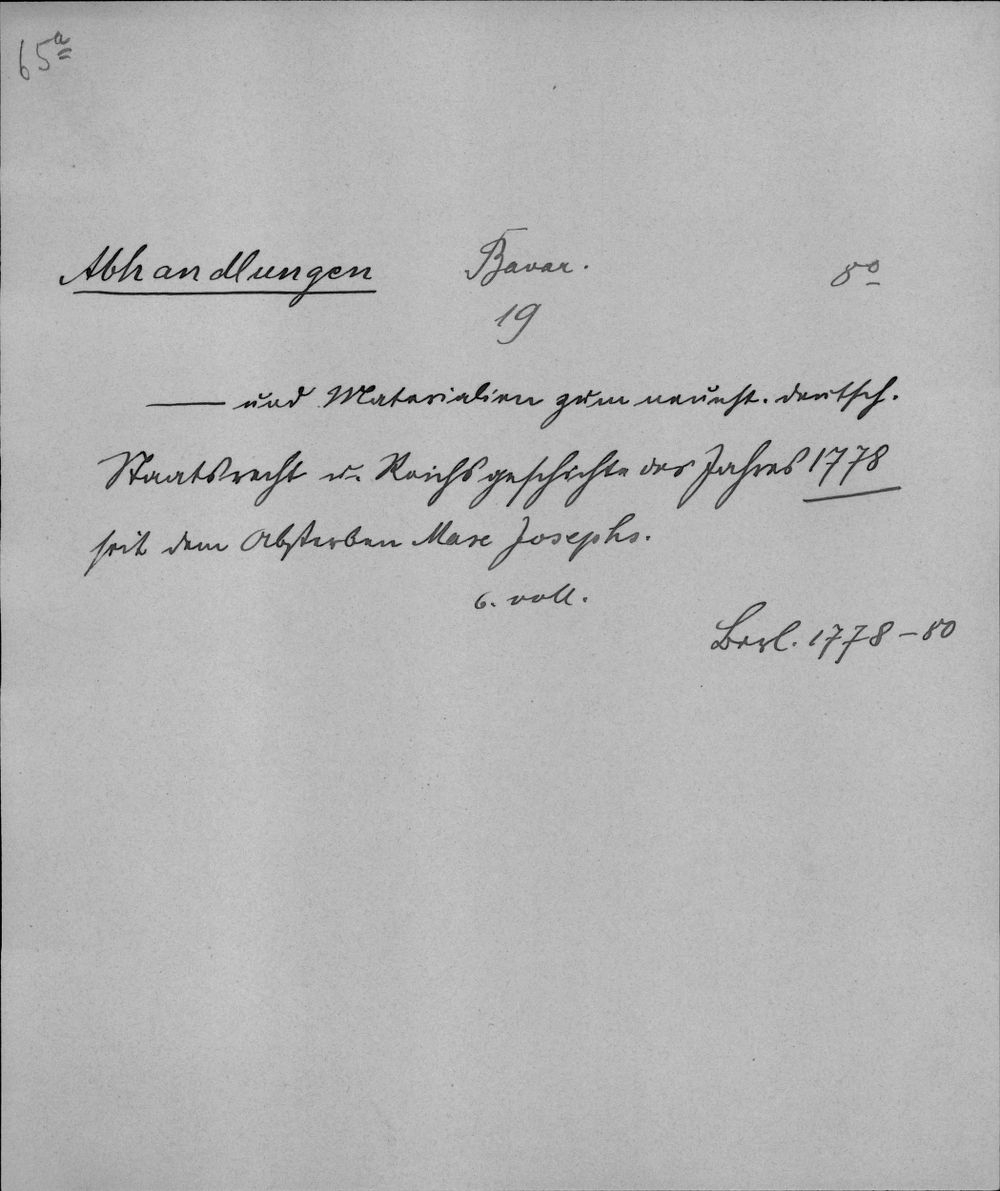 65a
Abhandlungen Bavar. 8o
19
— und Materialien zum neuest. deutsch.
Staatsrecht u. Reichsgeschichte des Jahres 1778
seit dem Absterben Max Josephs.
6. voll.
Berl. 1778-80